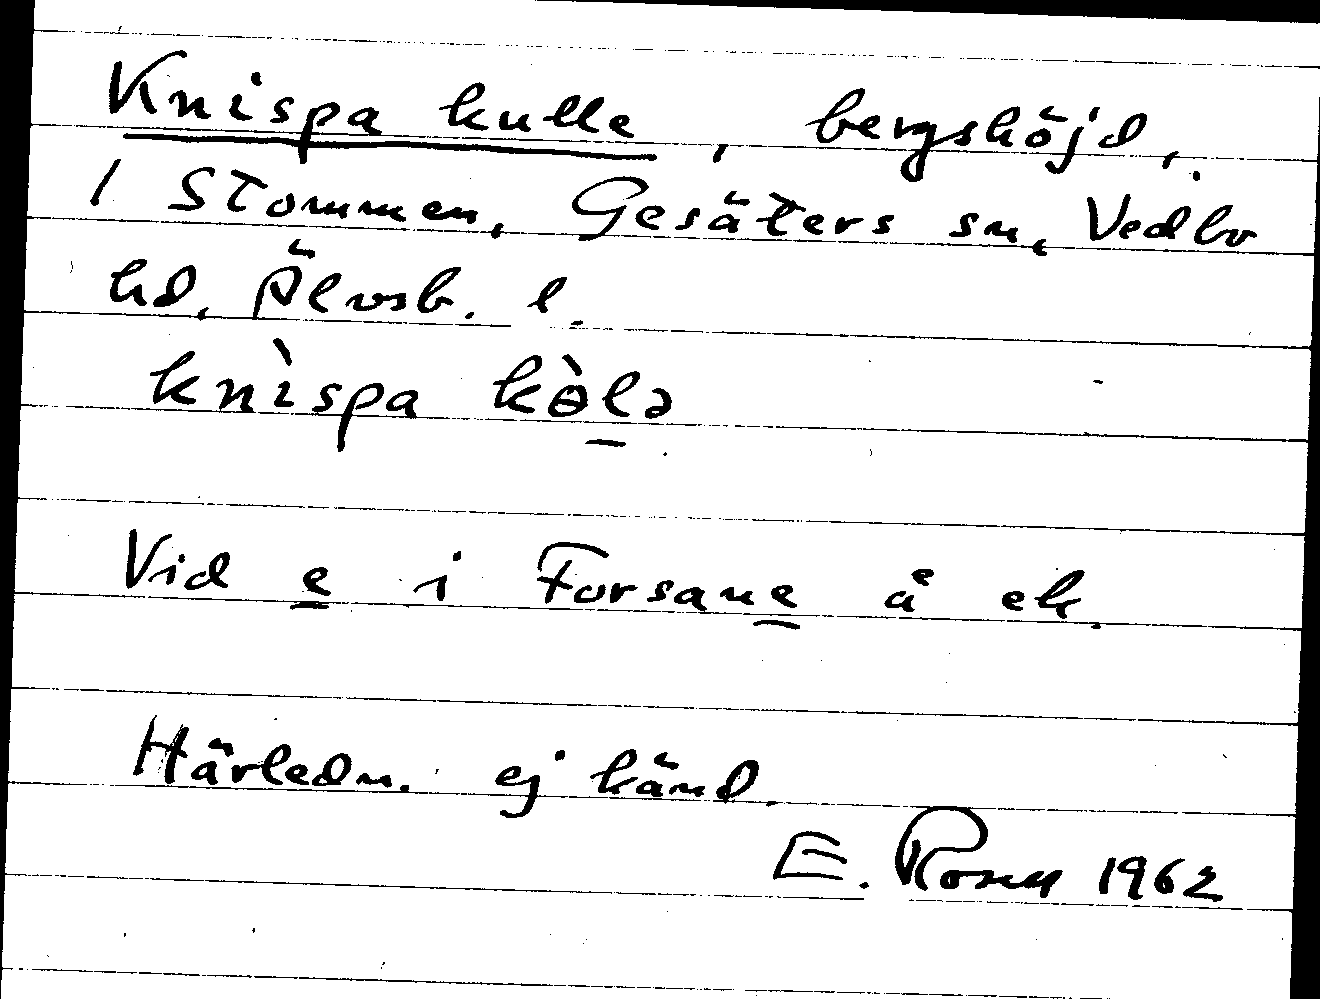 Knispa kulle, bergshöjd,
/ Stommen, Gesäters sn, Vedbo
hd, Älvsb. l.
knìspa kɵ̀lə
Vid e i Forsane å ek.
Härledn. ej känd.
E. Rosell 1962